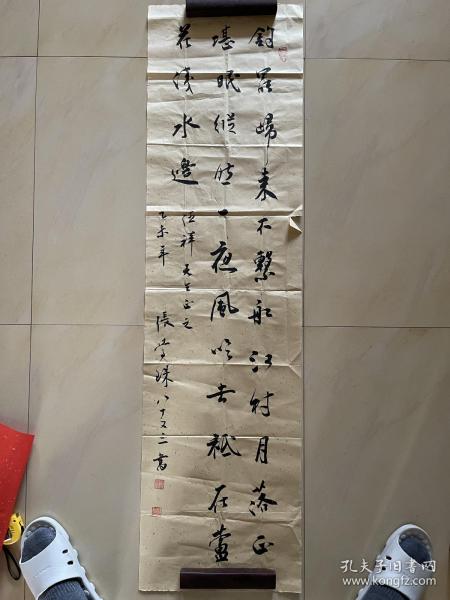 釣罷歸来不繫船江村月落正
堪眠縱然一夜風吹去祗在蘆
花淺水邊
祥先生正之
乙未年
八十又三書
孔夫子旧书网
www.kongfz.com